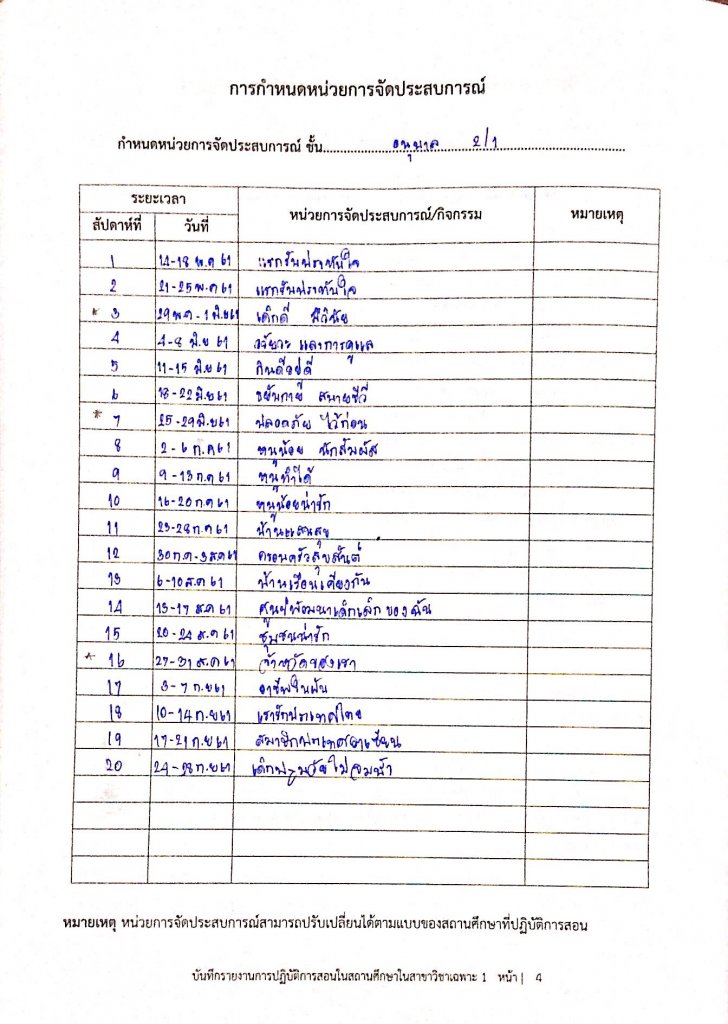 การกำหนดหน่วยการจัดประสบการณ์
กำหนดหน่วยการจัดประสบการณ์ ชั้น อนุบาล 2/1
ระยะเวลา
สัปดาห์ที่ วันที่ หน่วยการจัดประสบการณ์/กิจกรรม หมายเหตุ
1 14-18 พ.ค 61 แรกรับประทับใจ
2 21-25 พ.ค 61 แรกรับประทับใจ
* 3 29 พ.ค - 1 มิ.ย 61 เด็กดี มีวินัย
4 4-8 มิ.ย 61 อวัยวะ และการดูแล
5 11-15 มิ.ย 61 กินดีอยู่ดี
6 18-22 มิ.ย 61 ขยับกาย สบายชีวี
* 7 25-29 มิ.ย 61 ปลอดภัย ไว้ก่อน
8 2-6 ก.ค 61 หนูน้อย นักสัมผัส
9 9-13 ก.ค 61 หนูทำได้
10 16-20 ก.ค 61 หนูน้อยน่ารัก
11 23-28 ก.ค 61 บ้านแสนสุข
12 30 ก.ค - 3 ส.ค 61 ครอบครัวสุขสันต์
13 6-10 ส.ค 61 บ้านเรือนเคียงกัน
14 13-17 ส.ค 61 ศูนย์พัฒนาเด็กเล็ก ของฉัน
15 20-24 ส.ค 61 ชุมชนน่ารัก
* 16 27-31 ส.ค 61 จังหวัดของเรา
17 3-7 ก.ย 61 อาชีพในฝัน
18 10-14 ก.ย 61 เรารักประเทศไทย
19 17-21 ก.ย 61 สมาชิกประเทศอาเซียน
20 24-28 ก.ย 61 เด็กปฐมวัยไม่จมน้ำ
หมายเหตุ หน่วยการจัดประสบการณ์สามารถปรับเปลี่ยนได้ตามแบบของสถานศึกษาที่ปฏิบัติการสอน
บันทึกรายงานการปฏิบัติการสอนในสถานศึกษาในสาขาวิชาเฉพาะ 1 หน้า | 4